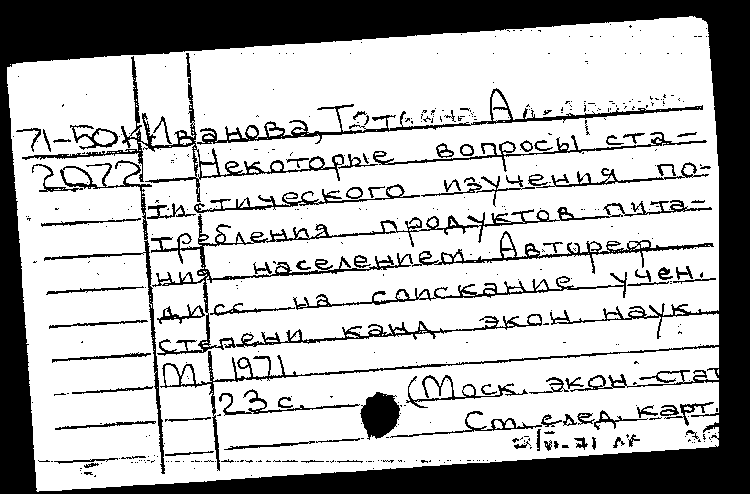 71-БОК Иванова, Татьяна
2072 Некоторые вопросы ста-
тистического изучения по-
требления продуктов пита-
ния населением. Автореф.
дисс. на соискание учен.
степени канд. экон. наук.
М. 1971.
23 с. (Моск. экон.-стат
См. след. карт.